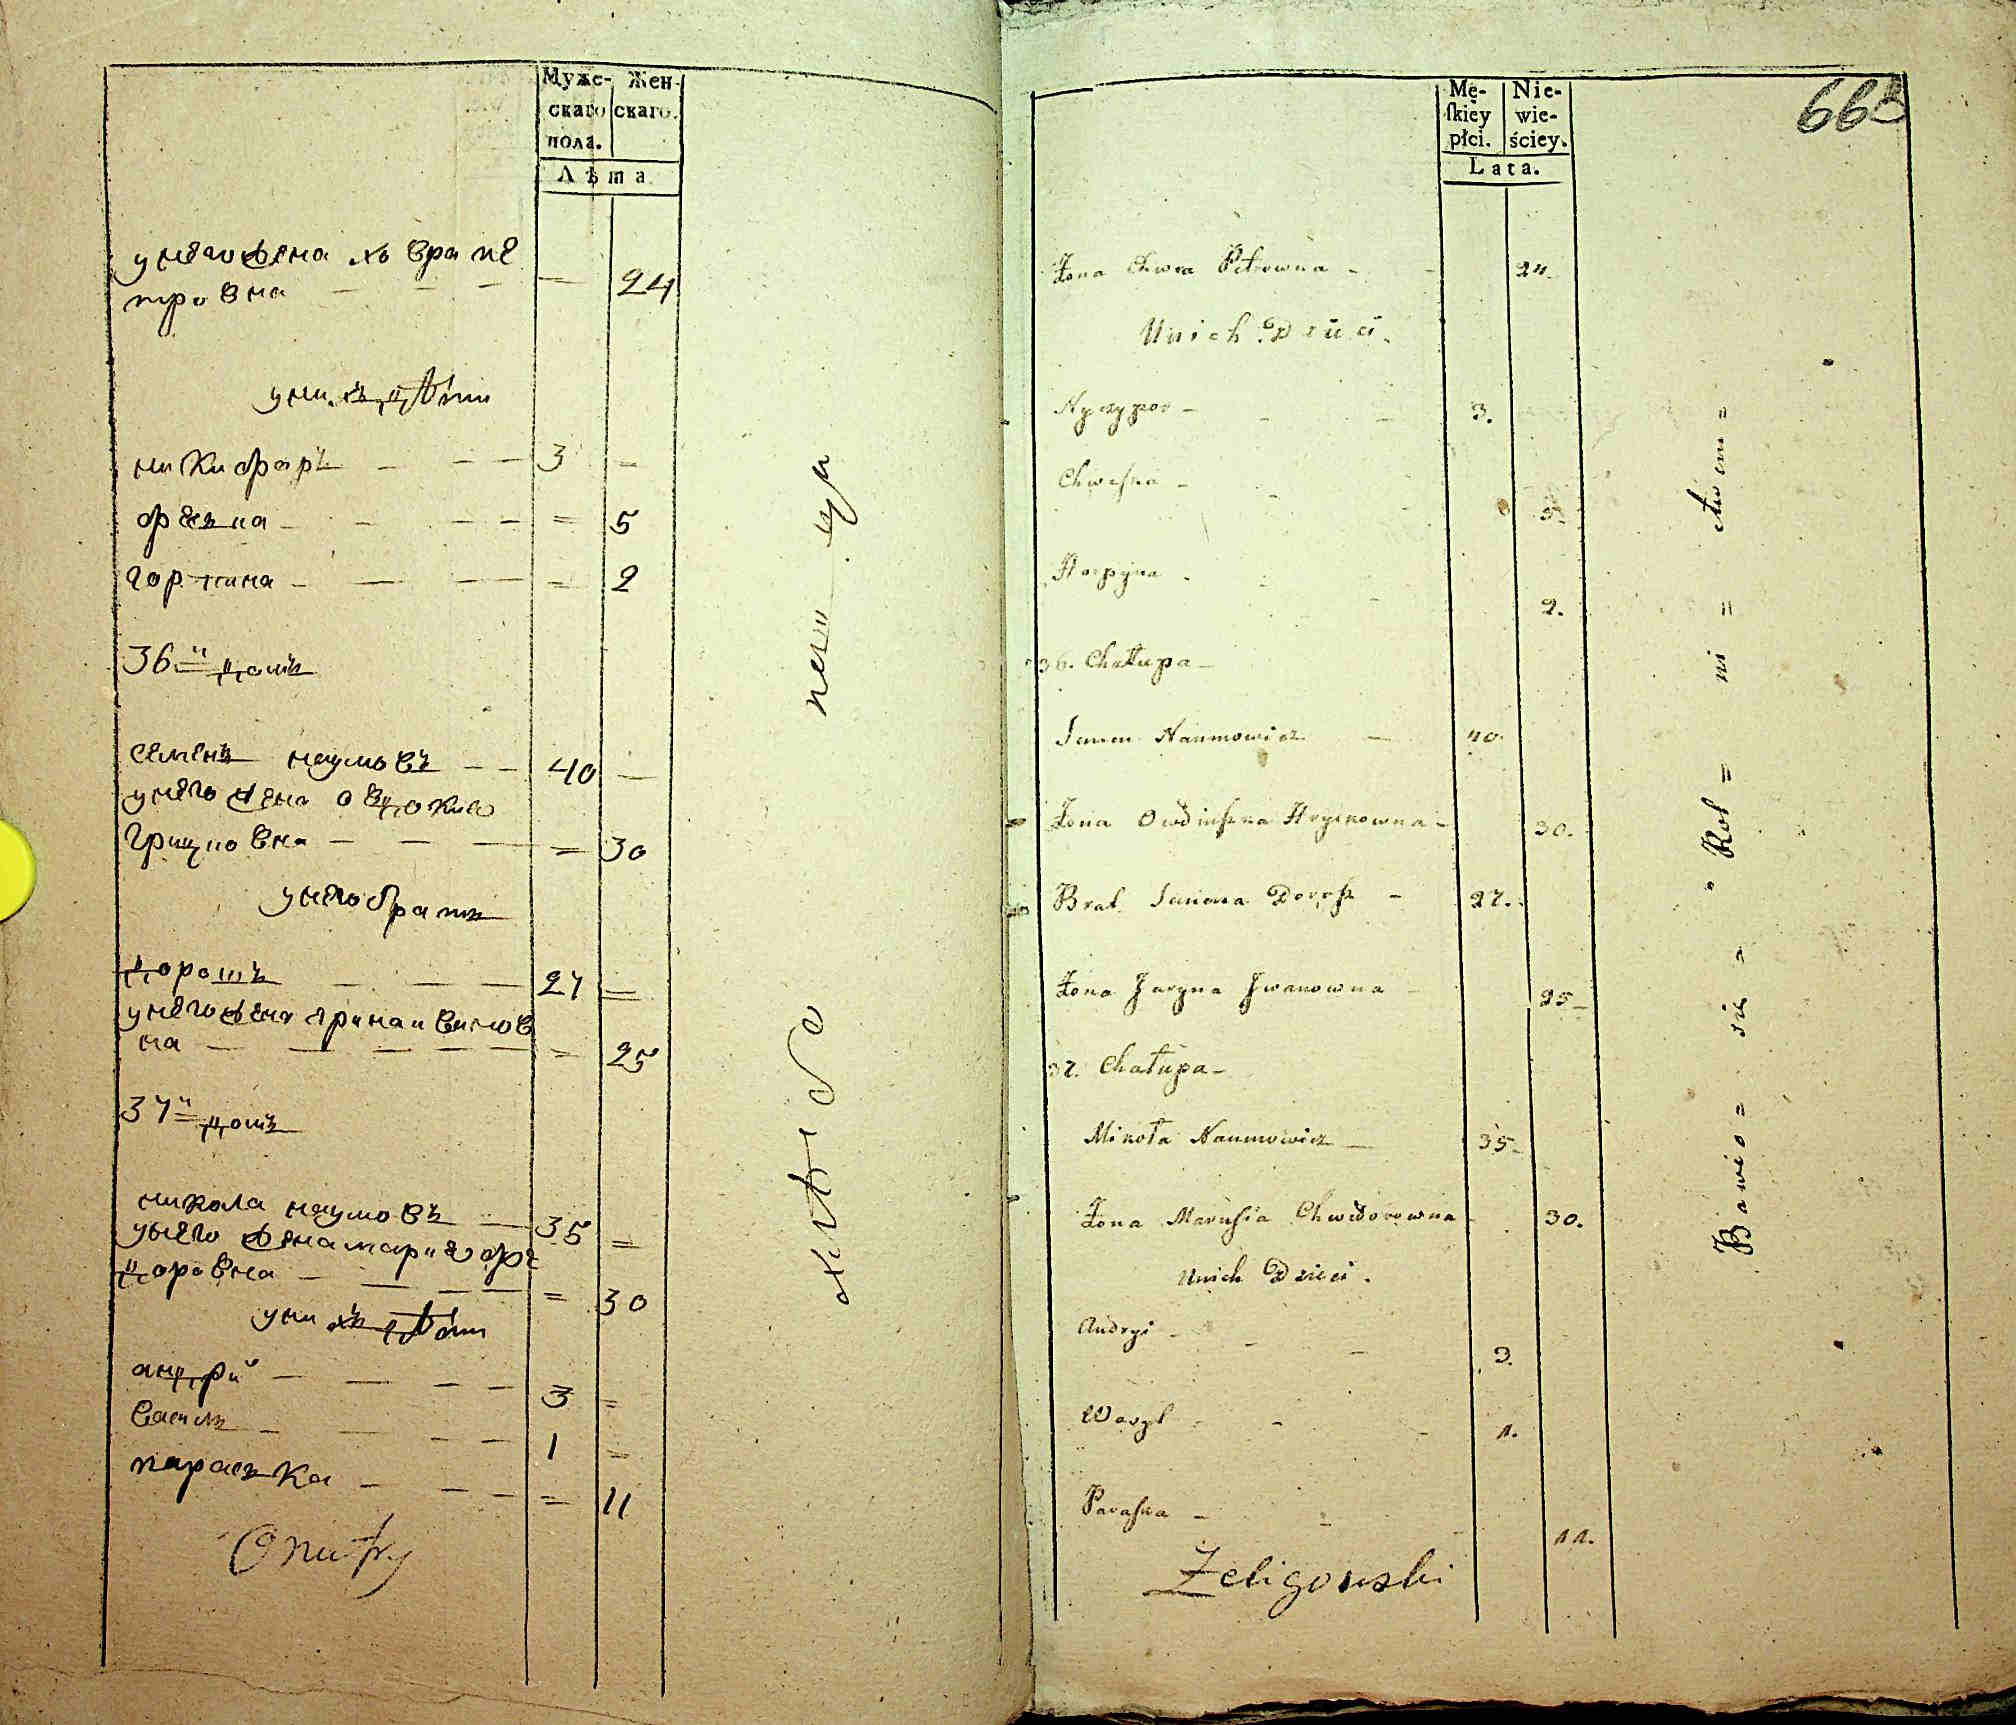 Муже-
скаго
пола.
Жен-
скаго.
Лѣта
у него жена хвра пе
тровна — — — — 24
у нихъ дѣти
никифаръ — — — 3 —
феска — — — = 5
горпина — — — = 2
36й домъ
семенъ наумовъ — — 40 —
у него жена овдокия
грицковна — — — = 30
у него братъ
дорошъ — — — 27 =
у него жена ярина ивановъ
на — — — — — = 25
37й домъ
никола наумовъ — 35 =
у него жена мария фе
доровна — — — — = 30
у нихъ дѣти
андрй — — — — 3 =
василь — — — — 1 =
параска — — — — = 11
Mę-
ſkiey
płci.
Nie-
wie-
ściey.
Lata.
663
Żona Chwra Petrowna - - 24.
Unich Dzieci.
Nyczypor - - - 3.
Chweska - - 5.
Harpyna - - - 2.
36. Chałupa -
Semen Naumowicz - 40.
Żona Owdiuszka Hryckowna - 30.
Brat Semena Dorosz - 27.
Żona Jaryna Jwanowna - 25 -
37. Chałupa -
Mikoła Naumowicz - 35 -
Żona Marusia Chwedorowna - 30.
Unich Dzieci.
Andryi - - - 3.
Wasyl - - - 1.
Paraska - - - 11.
Żeligowski
Bawio = się = Rol = ni = ctwem =